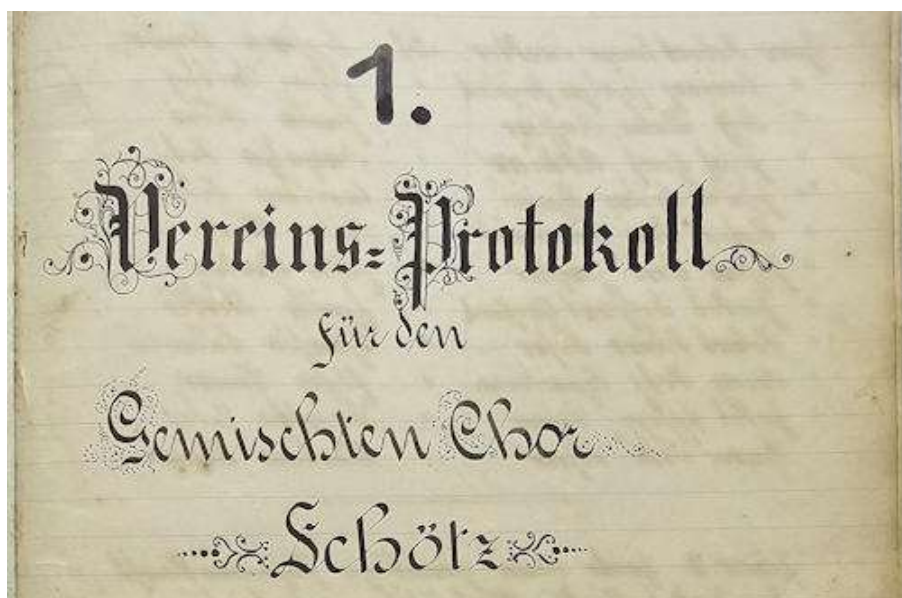 1.
Vereins=Protokoll
für den
Gemischten Chor
Schötz